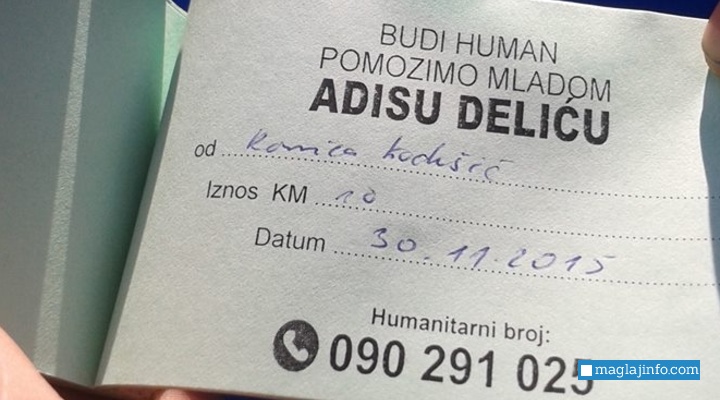 BUDI HUMAN
POMOZIMO MLADOM
ADISU DELIĆU
od
Iznos KM 10
Datum 30.11.2015
Humanitarni broj:
090 291 025
maglajinfo.com